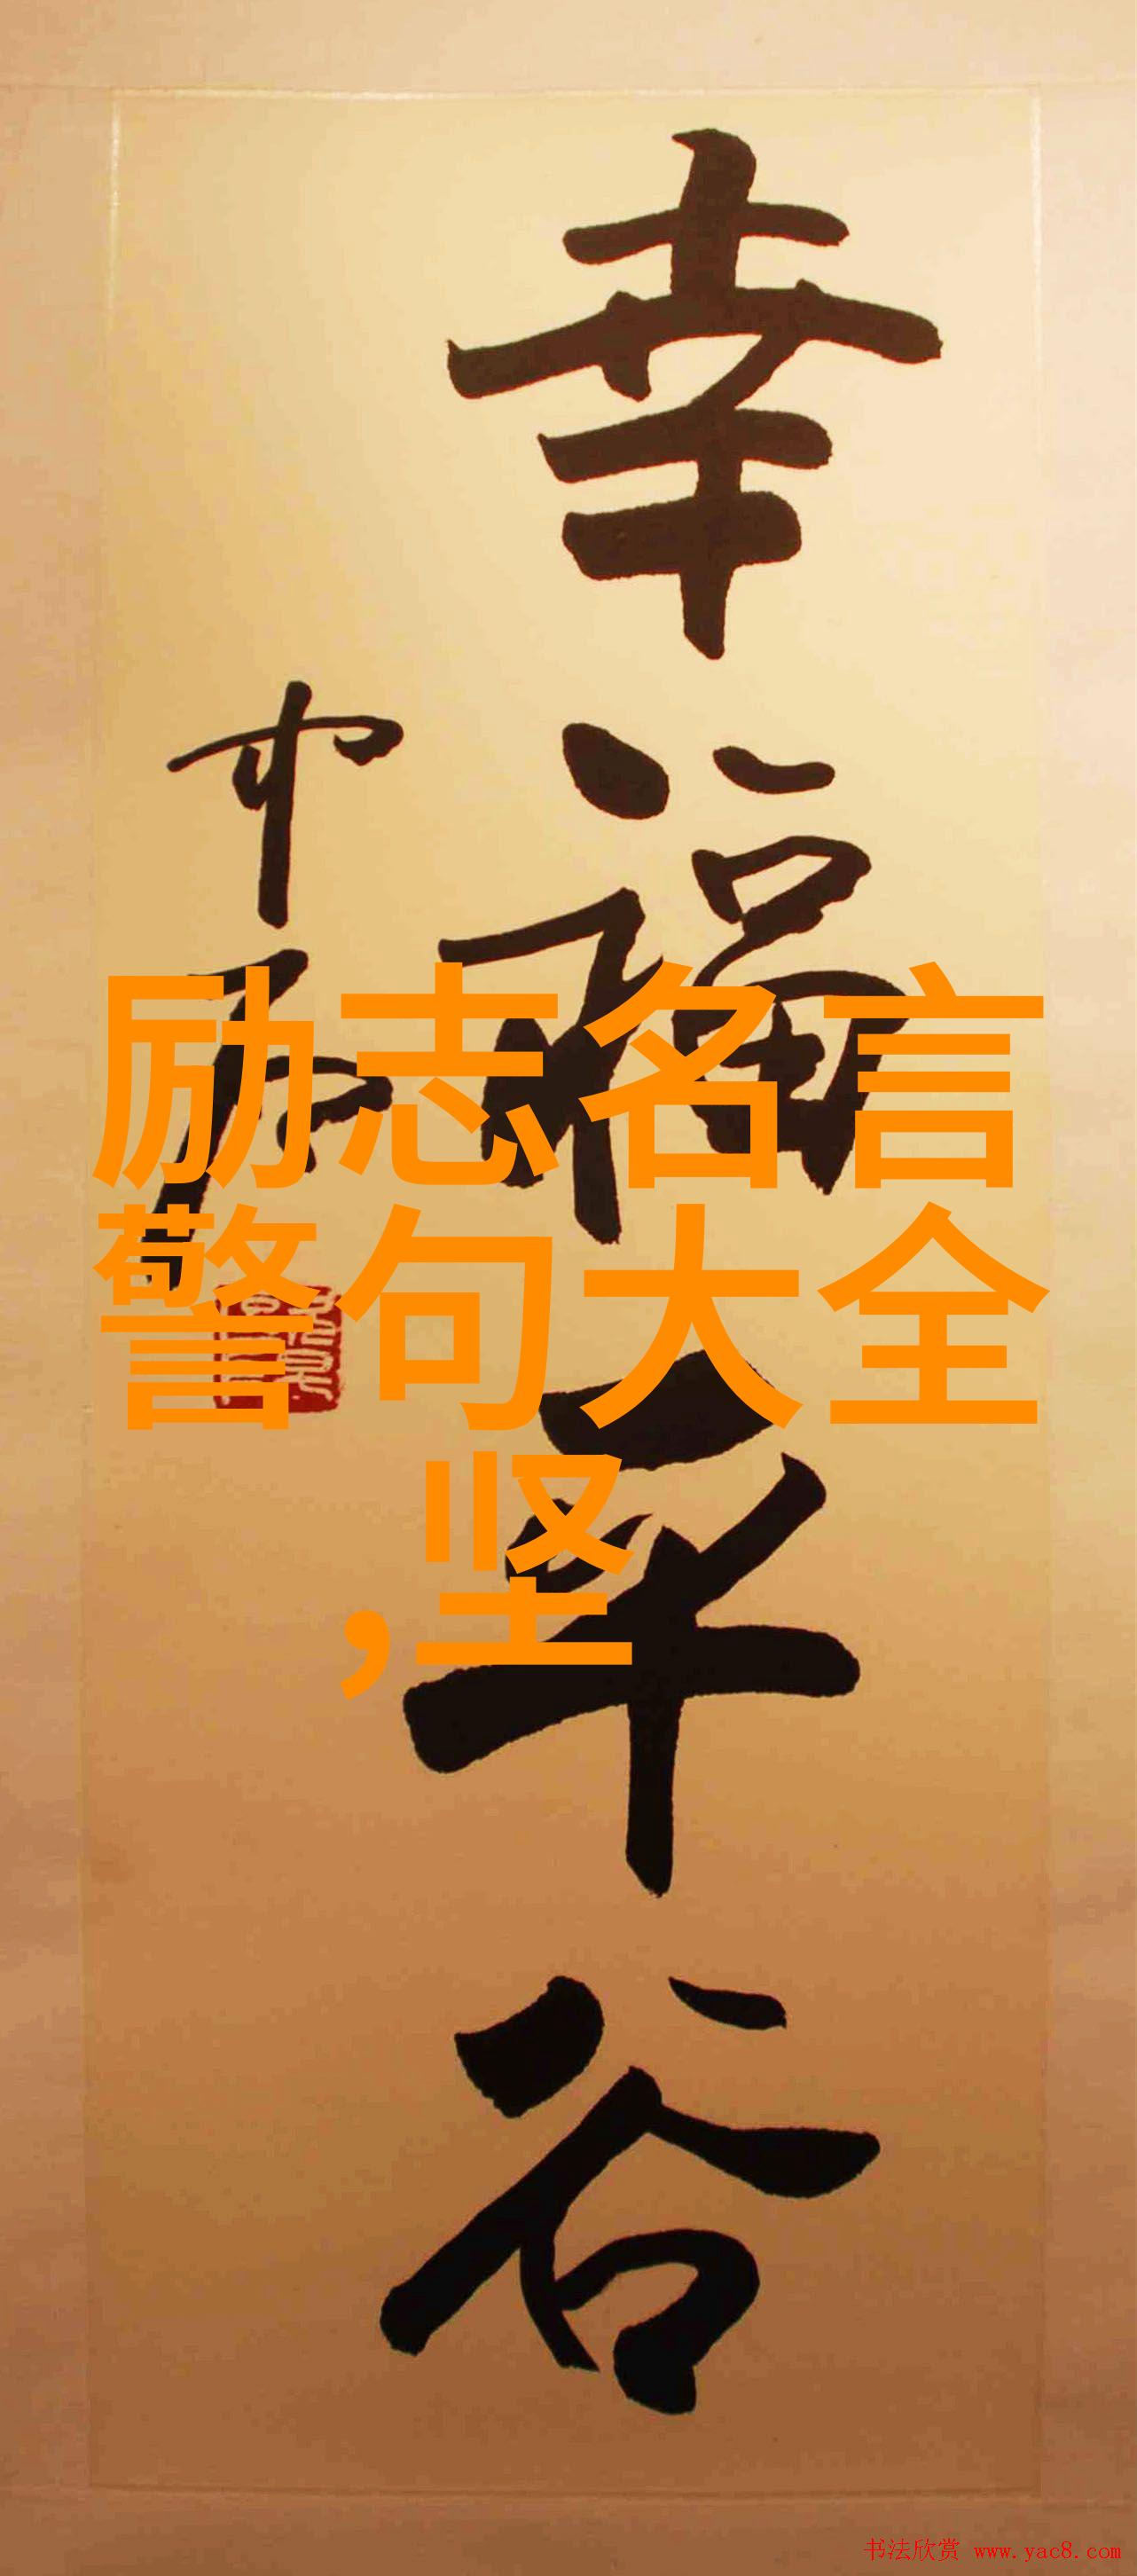 幸福平谷
中石
励志名言
警句大全
,坚
书法欣赏 www.yac8.com